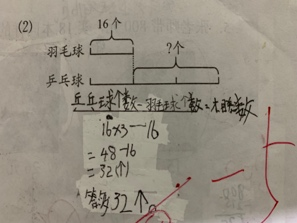 (2)
16个
?个
羽毛球
乒乓球
乒乓球个数-羽毛球个数=
16×3-16
=48-16
=32(个)
答:32个。